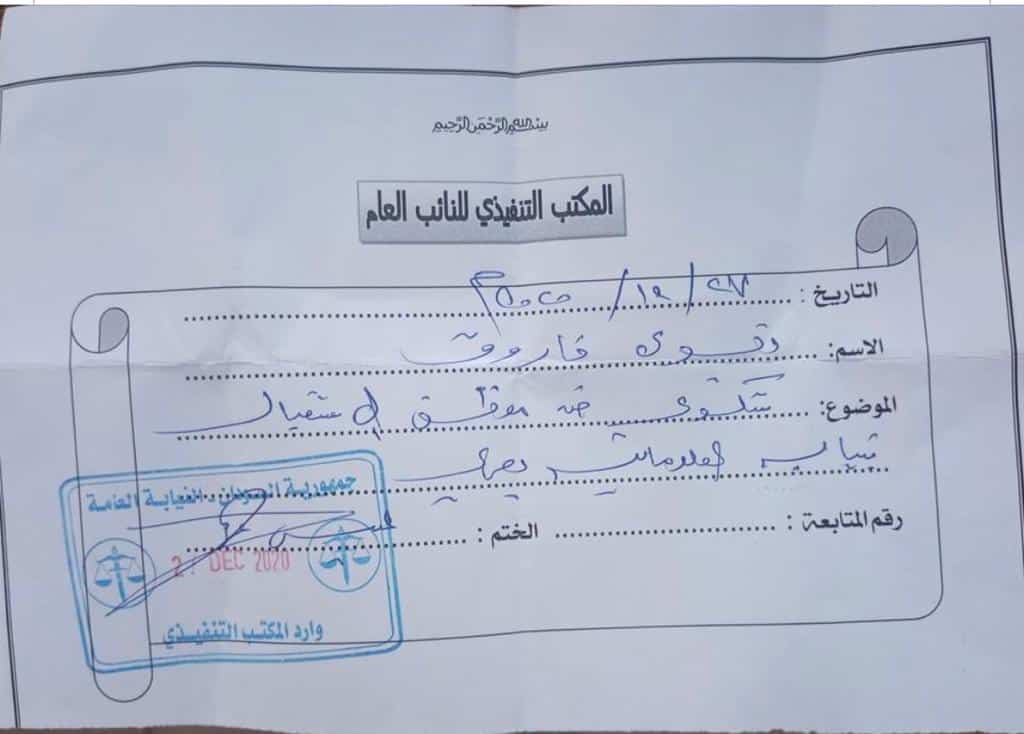 بسم الله الرحمن الرحيم
المكتب التنفيذي للنائب العام
التاريخ : ٢٧/١٢/٢٠٢٠م
الاسم: تقوى فاروق
الموضوع: شكوى ضد موظف الاستقبال
نيابة المعلوماتية
رقم المتابعة : الختم :
جمهورية السودان - النيابة العامة
DEC 2020
وارد المكتب التنفيذي